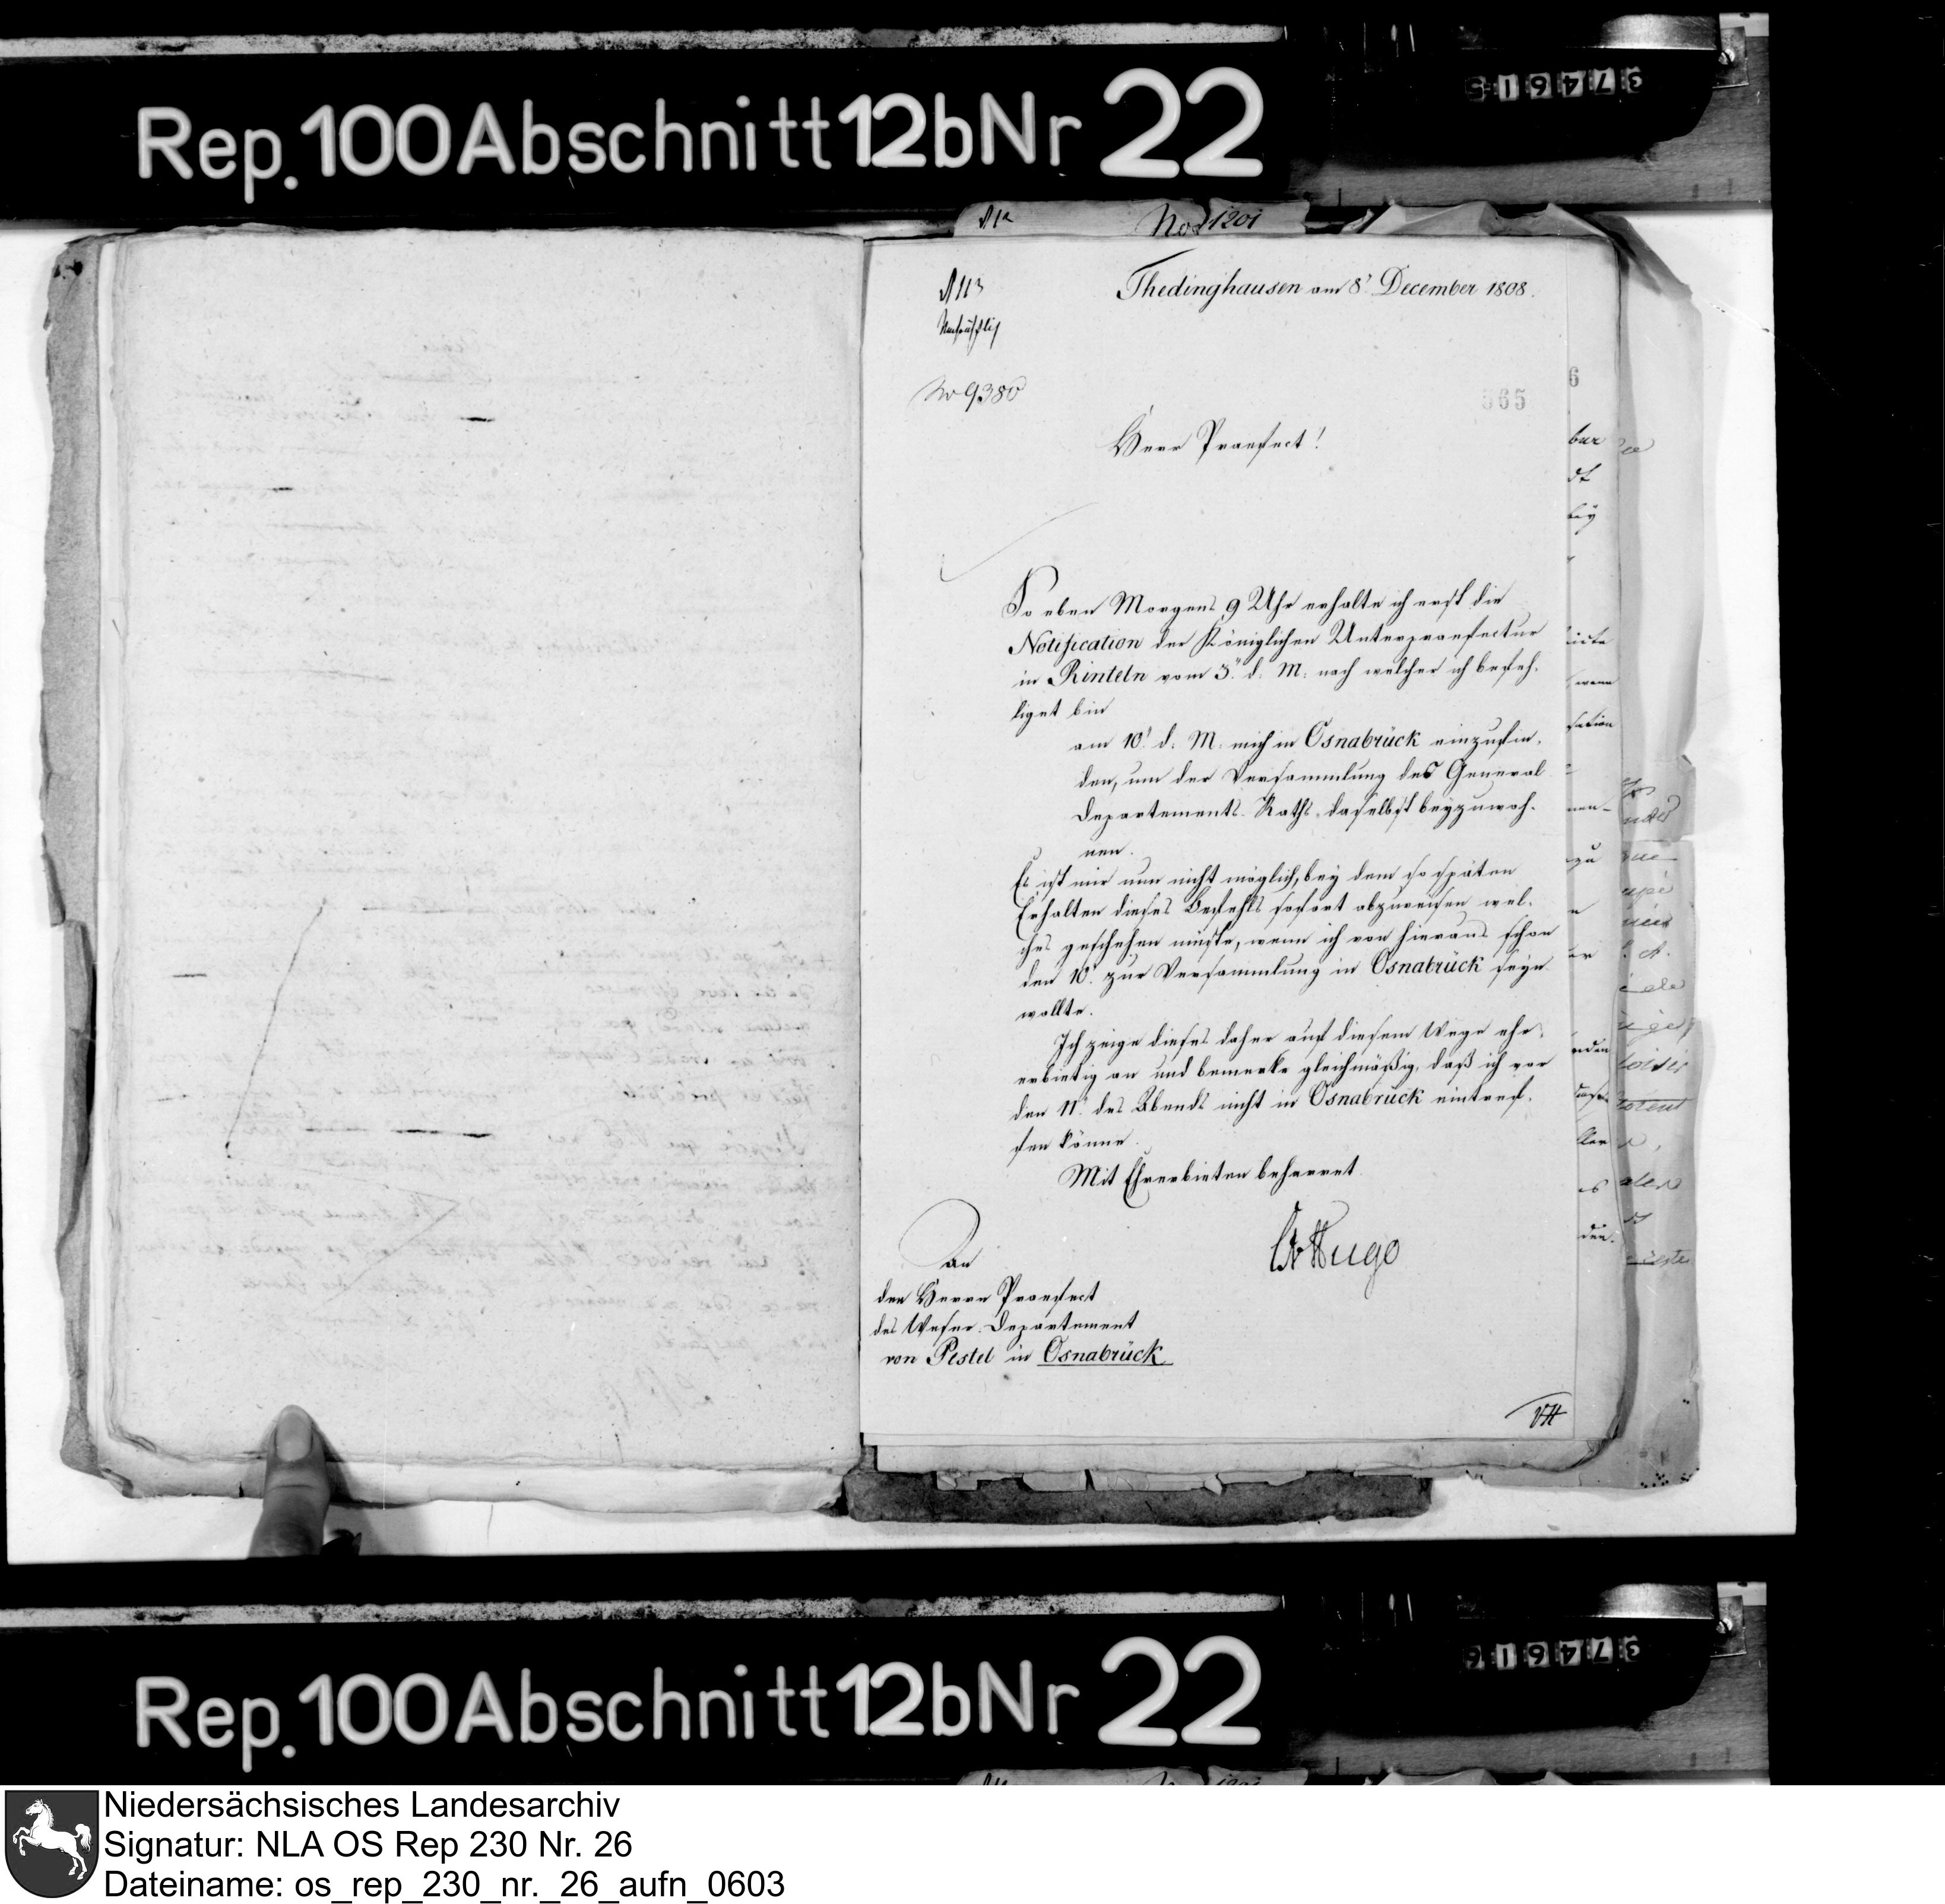 Rep. 100 Abschnitt 12b Nr 22
374615
No 1201
Thedinghausen am 8t December 1808.
N 113
No 9380
365
Herr Praefect!
So eben Morgens 9 Uhr erhalte ich erst die
Notification der Königlichen Unterpraefectur
in Rinteln vom 3t d. M. nach welcher ich befeh-
liget bin
am 10t d. M. mich in Osnabrück einzufin-
den, um der Versammlung des General
Departements-Raths daselbst beyzuwoh-
nen.
Es ist mir nun nicht möglich, bey dem so späten
Erhalten dieses Befehls sofort abzureisen wel-
ches geschehen müßte, wenn ich von hieraus schon
den 10t zur Versammlung in Osnabrück seyn
wollte.
Ich zeige dieses daher auf diesem Wege ehr-
erbietig an und bemerke gleichmäßig, daß ich vor
den 11t des Abends nicht in Osnabrück eintref-
fen könne.
Mit Ehrerbieten beharret
Hugo
An
den Herrn Praefect
des Weser-Departement
von Pestel in Osnabrück
Rep. 100 Abschnitt 12b Nr 22
374616
Niedersächsisches Landesarchiv
Signatur: NLA OS Rep 230 Nr. 26
Dateiname: os_rep_230_nr._26_aufn_0603